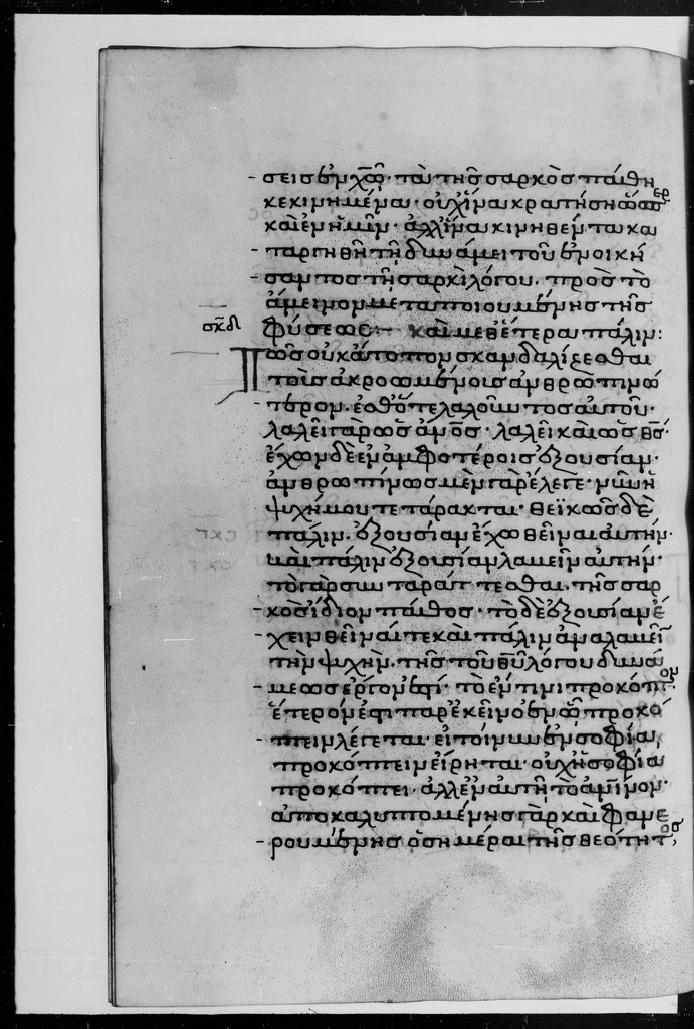 σεις ἐν χω̅· τὰ τῆς σαρκὸς πάθη
κεκινημένα· οὐχ ἵνα κρατήσῃ ὥσπερ
καὶ ἐν ἡμῖν· ἀλλ' ἵνα κινηθέντα κα
ταργηθῆ τῆ δυνάμει τοῦ ἐνοικήσαντος τῆ σαρκὶ λόγου. πρὸς τὸ
ἄμεινον μεταποιουμένης τῆς
σχδι
φύσεως:— καὶ μεθ' ἕτερα πάλιν:
Πῶς οὐκ ἄτοπον σκανδαλίζεσθαι
τοῖς ἀκροωμένοις ἀνθρωπινώ
τερον. ἐσθότε λαλοῦντος αὐτοῦ·
λαλεῖ γὰρ ὡς ἀν̅ο̅ς· λαλεῖ καὶ ὡς θ̅ς·
ἔχων δὲ ἐν ἀμφοτέροις ἐξουσίαν·
ἀνθρωπίνως μὲν γὰρ ἔλεγε· νῦν ἡ
ψυχή μου τετάρακται· θεϊκῶς δὲ
πάλιν. ἐξουσίαν ἔχω θεῖναι αὐτήν·
καὶ πάλιν ἐξουσίαν λαβεῖν αὐτήν·
τὸ γὰρ συνταράττεσθαι. τῆς σαρ
κὸς ἴδιον πάθος· τὸ δὲ ἐξουσίαν ἔ
χειν θεῖναί τε καὶ πάλιν ἀναλαβεῖ
τὴν ψυχήν. τῆς τοῦ θ̅υ̅ λόγου δυνά
μεως ἔργον ἐστί· τὸ ἔν τινι προκόπτον
ἕτερόν ἐστι παρ' ἐκεῖνο ἐν ᾧ προκό
πτειν λέγεται· εἰ τοίνυν ἐν σοφία
προκόπτειν εἴρηται· οὐχ ἡ σοφία
προκόπτει· ἀλλ' ἐν αὐτῆ τὸ ἀν̅ινον·
ἀποκαλυπτομένης γὰρ καὶ φανε
ρουμένης ὁσημέραι τῆς θεότητος,